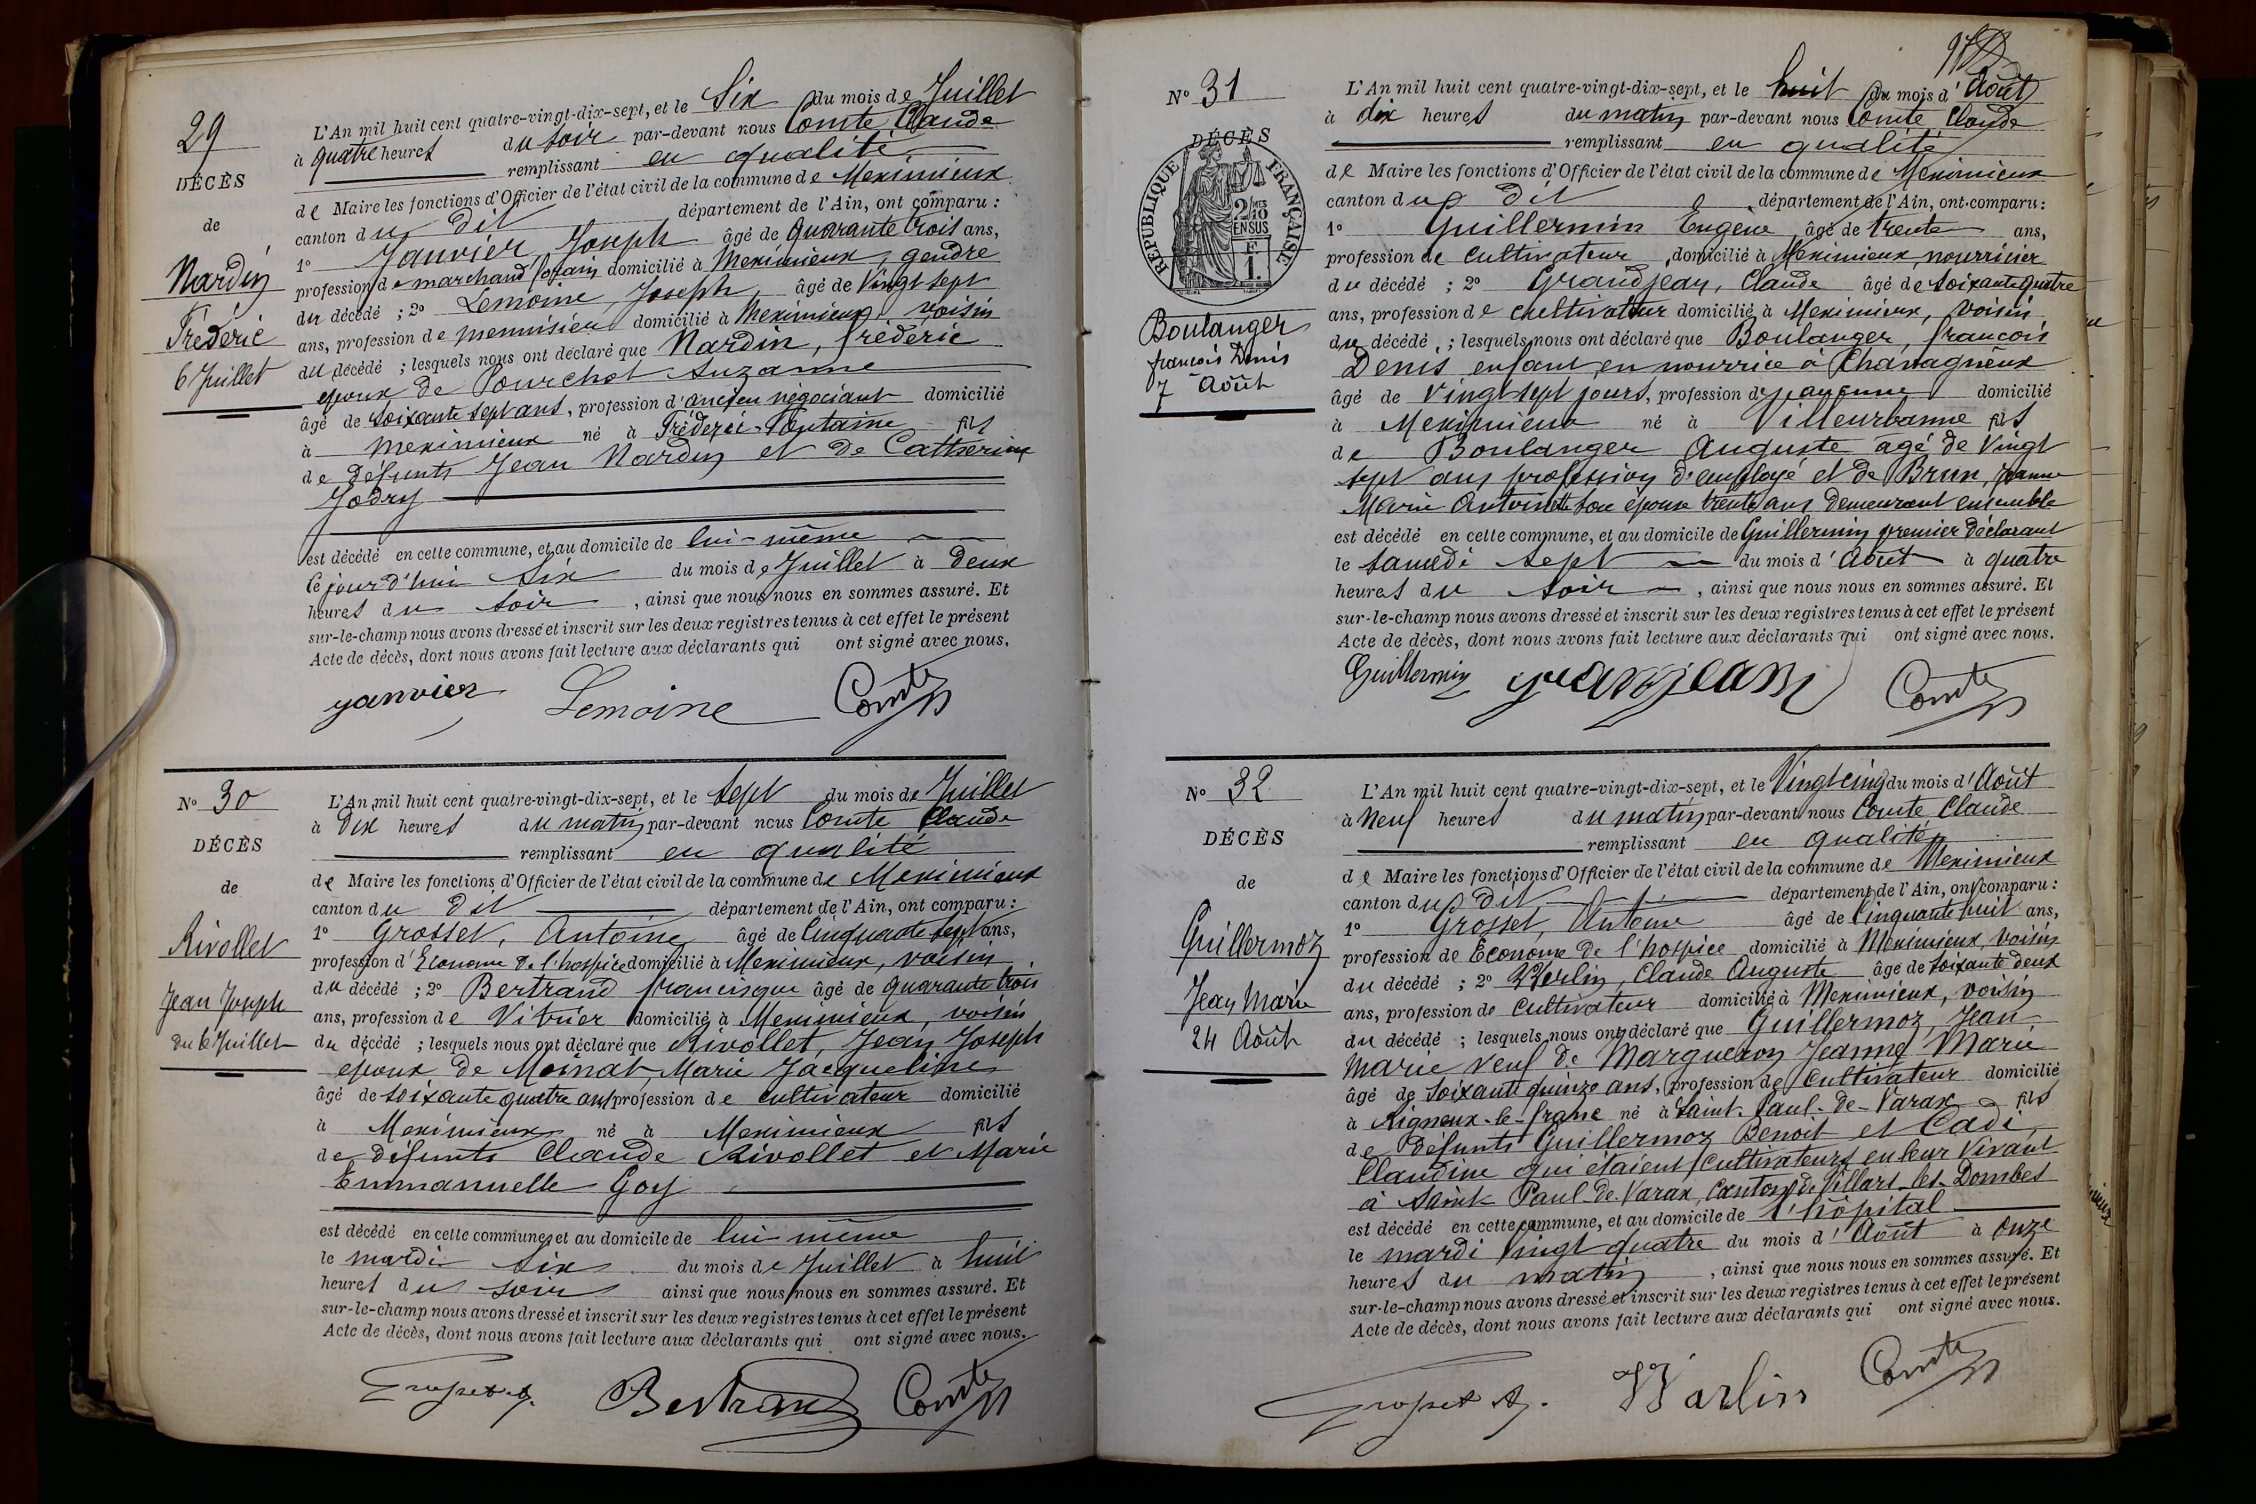 29
DÉCÈS
de
Nardin
Frédéric
6 Juillet
L'An mil huit cent quatre-vingt-dix-sept, et le Six du mois de Juillet
à quatre heures du soir par-devant nous Comte Claude
remplissant en qualité
de Maire les fonctions d'Officier de l'état civil de la commune de Meximieux
canton du dit département de l'Ain, ont comparu :
1° Janvier Joseph âgé de quarante trois ans,
profession de marchand forain domicilié à Meximieux, gendre
du décédé ; 2° Lemoine, Joseph, âgé de Vingt sept
ans, profession de menuisier domicilié à Meximieux voisin
du décédé ; lesquels nous ont déclaré que Nardin, frédéric
époux de Pourchot Suzanne
âgé de soixante sept ans, profession d'ancien négociant domicilié
à Meximieux né à Frédéric-Fontaine fils
de défunts Jean Nardin et de Catherine
Jodry
est décédé en cette commune, et au domicile de lui-même
Ce jour d'hui Six du mois de Juillet à Deux
heures du soir, ainsi que nous nous en sommes assuré. Et
sur-le-champ nous avons dressé et inscrit sur les deux registres tenus à cet effet le présent
Acte de décès, dont nous avons fait lecture aux déclarants qui ont signé avec nous.
janvier Lemoine Comte
N° 30
DÉCÈS
de
Rivollet
Jean Joseph
du 6 Juillet
L'An mil huit cent quatre-vingt-dix-sept, et le Sept du mois de Juillet
à Dix heures du matin par-devant nous Comte Claude
remplissant en qualité
de Maire les fonctions d'Officier de l'état civil de la commune de Meximieux
canton du dit département de l'Ain, ont comparu :
1° Grosset, Antoine âgé de Cinquante sept ans,
profession d'Econome de l'hospice domicilié à Meximieux, voisin
du décédé ; 2° Bertrand francisque âgé de quarante trois
ans, profession de Vitrier domicilié à Meximieux, voisin
du décédé ; lesquels nous ont déclaré que Rivollet, Jean Joseph
époux de Moinat, Marie Jacqueline
âgé de soixante quatre ans profession de cultivateur domicilié
à Meximieux né à Meximieux fils
de défunts Claude Rivollet et Marie
Emmanuelle Goy
est décédé en cette commune, et au domicile de lui-même
le mardi six du mois de Juillet à huit
heures du soir ainsi que nous nous en sommes assuré. Et
sur-le-champ nous avons dressé et inscrit sur les deux registres tenus à cet effet le présent
Acte de décès, dont nous avons fait lecture aux déclarants qui ont signé avec nous.
Grosset A. Bertrand Comte
N° 31
DÉCÈS
RÉPUBLIQUE FRANÇAISE
2/10 EN SUS
Boulanger
françois Denis
7 Août
L'An mil huit cent quatre-vingt-dix-sept, et le huit du mois d'Août
à dix heures du matin par-devant nous Comte Claude
remplissant en qualité
de Maire les fonctions d'Officier de l'état civil de la commune de Meximieux
canton du dit département de l'Ain, ont comparu :
1° Guillermin Eugène, âgé de trente ans,
profession de cultivateur, domicilié à Meximieux, nourricier
du décédé ; 2° Grandjean, Claude âgé de soixante quatre
ans, profession de cultivateur domicilié à Meximieux, voisin
du décédé ; lesquels nous ont déclaré que Boulanger, françois
Denis enfant en nourrice à Chavagnieux
âgé de Vingt sept jours, profession de domicilié
à Meximieux né à Villeurbanne fils
de Boulanger Auguste agé de Vingt
sept ans profession d'employé et de Brun, Jeanne
Marie Antoinette son épouse trente ans demeurant ensemble
est décédé en cette commune, et au domicile de Guillermin premier déclarant
le samedi sept du mois d'Août à quatre
heures du soir, ainsi que nous nous en sommes assuré. Et
sur-le-champ nous avons dressé et inscrit sur les deux registres tenus à cet effet le présent
Acte de décès, dont nous avons fait lecture aux déclarants qui ont signé avec nous.
Guillermin granjean Comte
N° 32
DÉCÈS
de
Guillermoz
Jean Marie
24 Août
L'An mil huit cent quatre-vingt-dix-sept, et le Vingt cinq du mois d'Août
à Neuf heures du matin par-devant nous Comte Claude
remplissant en qualité
de Maire les fonctions d'Officier de l'état civil de la commune de Meximieux
canton du dit département de l'Ain, ont comparu :
1° Grosset, Antoine âgé de Cinquante huit ans,
profession de Econome de l'hospice domicilié à Meximieux, voisin
du décédé ; 2° Claude Auguste âgé de soixante deux
ans, profession de cultivateur domicilié à Meximieux, voisin
du décédé ; lesquels nous ont déclaré que Guillermoz, Jean
Marie veuf de Margueron Jeanne Marie
âgé de soixante quinze ans, profession de cultivateur domicilié
à Rigneux-le-franc né à Saint-Paul-de-Varax fils
de défunts Guillermoz Benoit et Cadi
Claudine qui étaient cultivateurs en leur Vivant
à Saint Paul-de-Varax, Canton de Villars-les-Dombes
est décédé en cette commune, et au domicile de l'hôpital
le mardi Vingt quatre du mois d'Août à Onze
heures du matin, ainsi que nous nous en sommes assuré. Et
sur-le-champ nous avons dressé et inscrit sur les deux registres tenus à cet effet le présent
Acte de décès, dont nous avons fait lecture aux déclarants qui ont signé avec nous.
Grosset A. Warlin Comte